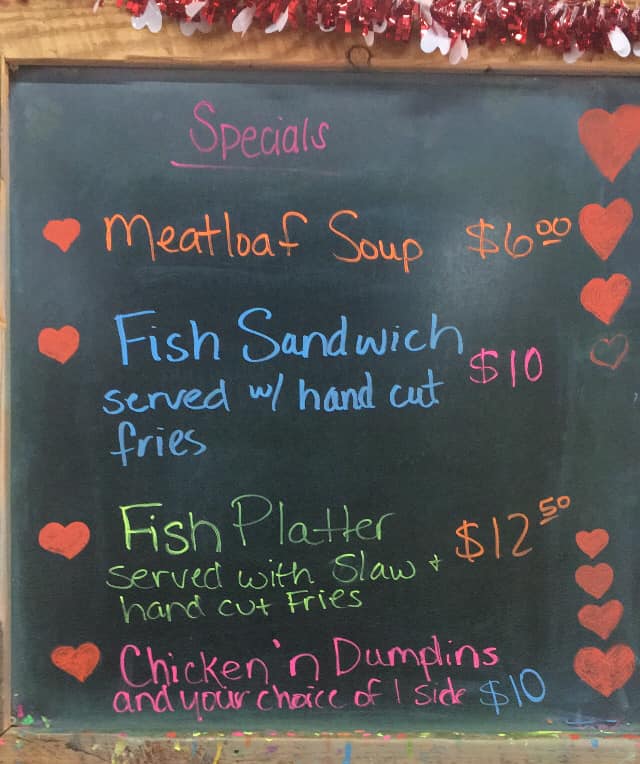 Specials
Meatloaf Soup $6.00
Fish Sandwich
served w/ hand cut $10
fries
Fish Platter $12 50
served with Slaw +
hand cut Fries
Chicken 'n Dumplins
and your choice of 1 side $10